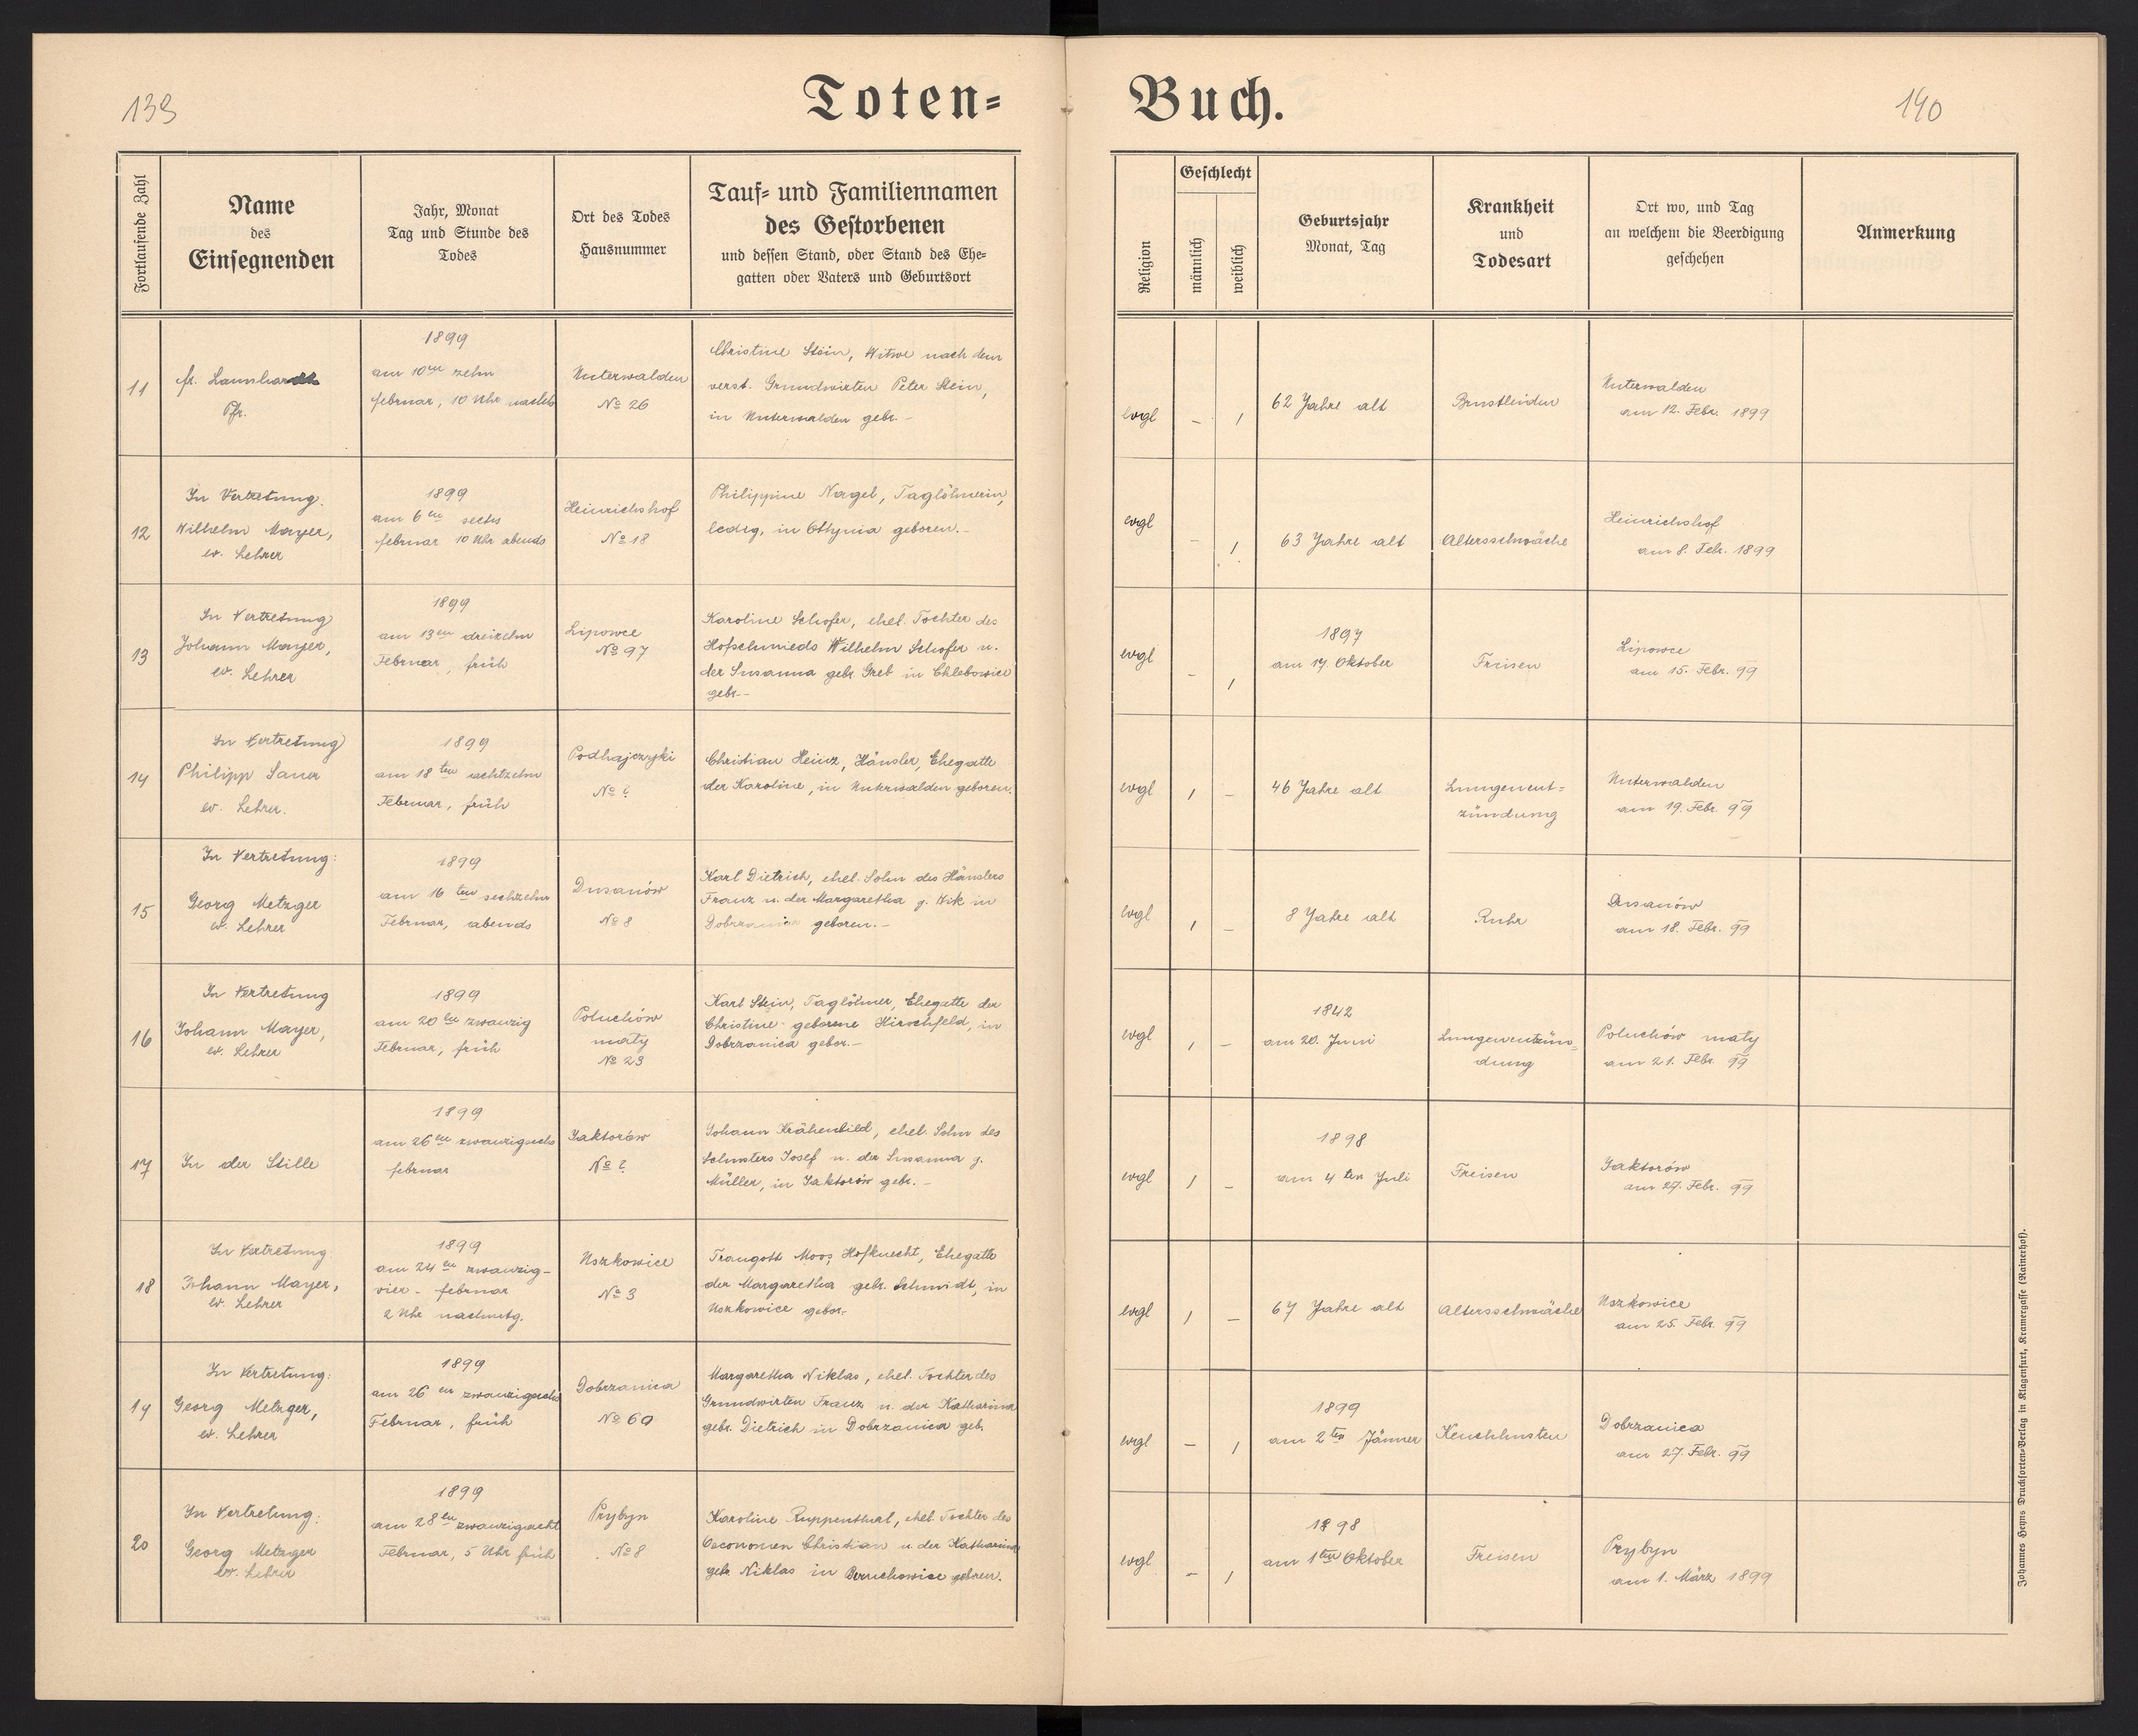 139
Toten=
Buch.
140
Fortlaufende Zahl
Name
des
Einsegnenden
Jahr, Monat
Tag und Stunde des
Todes
Ort des Todes
Hausnummer
Tauf= und Familiennamen
des Gestorbenen
und dessen Stand, oder Stand des Ehe=
gatten oder Vaters und Geburtsort
Religion
Geschlecht
männlich
weiblich
Geburtsjahr
Monat, Tag
Krankheit
und
Todesart
Ort wo, und Tag
an welchem die Beerdigung
geschehen
Anmerkung
11
fr.
Pfr.
1899
am 10en zehn
februar, 10 Uhr nachts
Unterwalden
No 26
Christine Stein, Witwe nach dem
verst. Grundwirten Peter Stein,
in Unterwalden gebr. -
evgl
-
1
62 Jahre alt
Brustleiden
Unterwalden
am 12. Febr. 1899
12
In Vertretung:
Wilhelm Mayer,
ev. Lehrer
1899
am 6en sechs
februar 10 Uhr abends
Heinrichshof
No 18
Philippine Nagel, Taglöhnerin,
ledig, in Ottynia geboren. -
evgl
-
1
63 Jahre alt
Altersschwäche
Heinrichshof
am 8. Feb. 1899
13
In Vertretung
Johann Mayer,
ev. Lehrer
1899
am 13en dreizehn
Februar, früh
Lipowce
No 97
Karoline Schofer, ehel. Tochter des
Hofschmieds Wilhelm Schofer u.
der Susanna gebr. Greb in Chlebowice
gebr. -
evgl
-
1
1897
am 17 Oktober
Freisen
Lipowce
am 15. Febr. 99
14
In Vertretung
Philipp Sauer
ev. Lehrer.
1899
am 18ten achtzehn
Februar, früh
Podhajczyki
No ?
Christian Heinz, Häusler, Ehegatte
der Karoline, in Unterwalden geboren.
evgl
1
-
46 Jahre alt
Lungenent=
zündung
Unterwalden
am 19. Febr. 99
15
In Vertretung:
Georg Metzger
ev. Lehrer
1899
am 16ten sechzehn
Februar, abends
Dusanów
No 8
Karl Dietrich, ehel. Sohn des Häuslers
Franz u. der Margaretha g. Wik in
Dobrzanica geboren. -
evgl
1
-
8 Jahre alt
Ruhr
Dusanów
am 18. Febr. 99
16
In Vertretung
Johann Mayer,
ev. Lehrer
1899
am 20ten zwanzig
Februar, früh
Poluchów
maty
No 23
Karl Stein, Taglöhner, Ehegatte der
Christine geborene Hirschfeld, in
Dobrzanica gebor. -
evgl
1
-
1842
am 20. Juni
Lungenentzün=
dung
Poluchów maty
am 21. Febr. 99
17
In der Stille
1899
am 26en zwanzigsechs
februar
Jaktorów
No ?
Johann Krähenbild, ehel. Sohn des
Schusters Josef u. der Susanna g.
Müller, in Jaktorów gebr. -
evgl
1
-
1898
am 4ten Juli
Freisen
Jaktorów
am 27. Febr. 99
18
In Vertretung
Johann Mayer,
ev. Lehrer
1899
am 24en zwanzig-
vier - februar
2 Uhr nachmtg.
Uszkowice
No 3
Traugott Moos, Hofknecht, Ehegatte
der Margaretha gebr. Schmidt, in
Uszkowice gebor.
evgl
1
-
67 Jahre alt
Altersschwäche
Uszkowice
am 25. Febr. 99
19
In Vertretung:
Georg Metzger,
ev. Lehrer
1899
am 26en zwanzigsechs
Februar, früh
Dobrzanica
No 60
Margaretha Niklas, ehel. Tochter des
Grundwirten Franz u. der Katharina
gebr. Dietrich in Dobrzanica geb.
evgl
-
1
1899
am 2ten Jänner
Keuchhusten
Dobrzanica
am 27. Febr. 99
20
In Vertretung:
Georg Metzger
ev. Lehrer
1899
am 28en zwanzigacht
Februar, 5 Uhr früh
Prybyn
No 8
Karoline Ruppenthal, ehel. Tochter des
Oeconomen Christian u. der Katharina
gebr. Niklas in geboren.
evgl
-
1
1898
am 1ten Oktober
Freisen
Prybyn
am 1. März 1899
Johannes Heyns Drucksorten-Verlag in Klagenfurt, Kramergasse (Rainerhof).